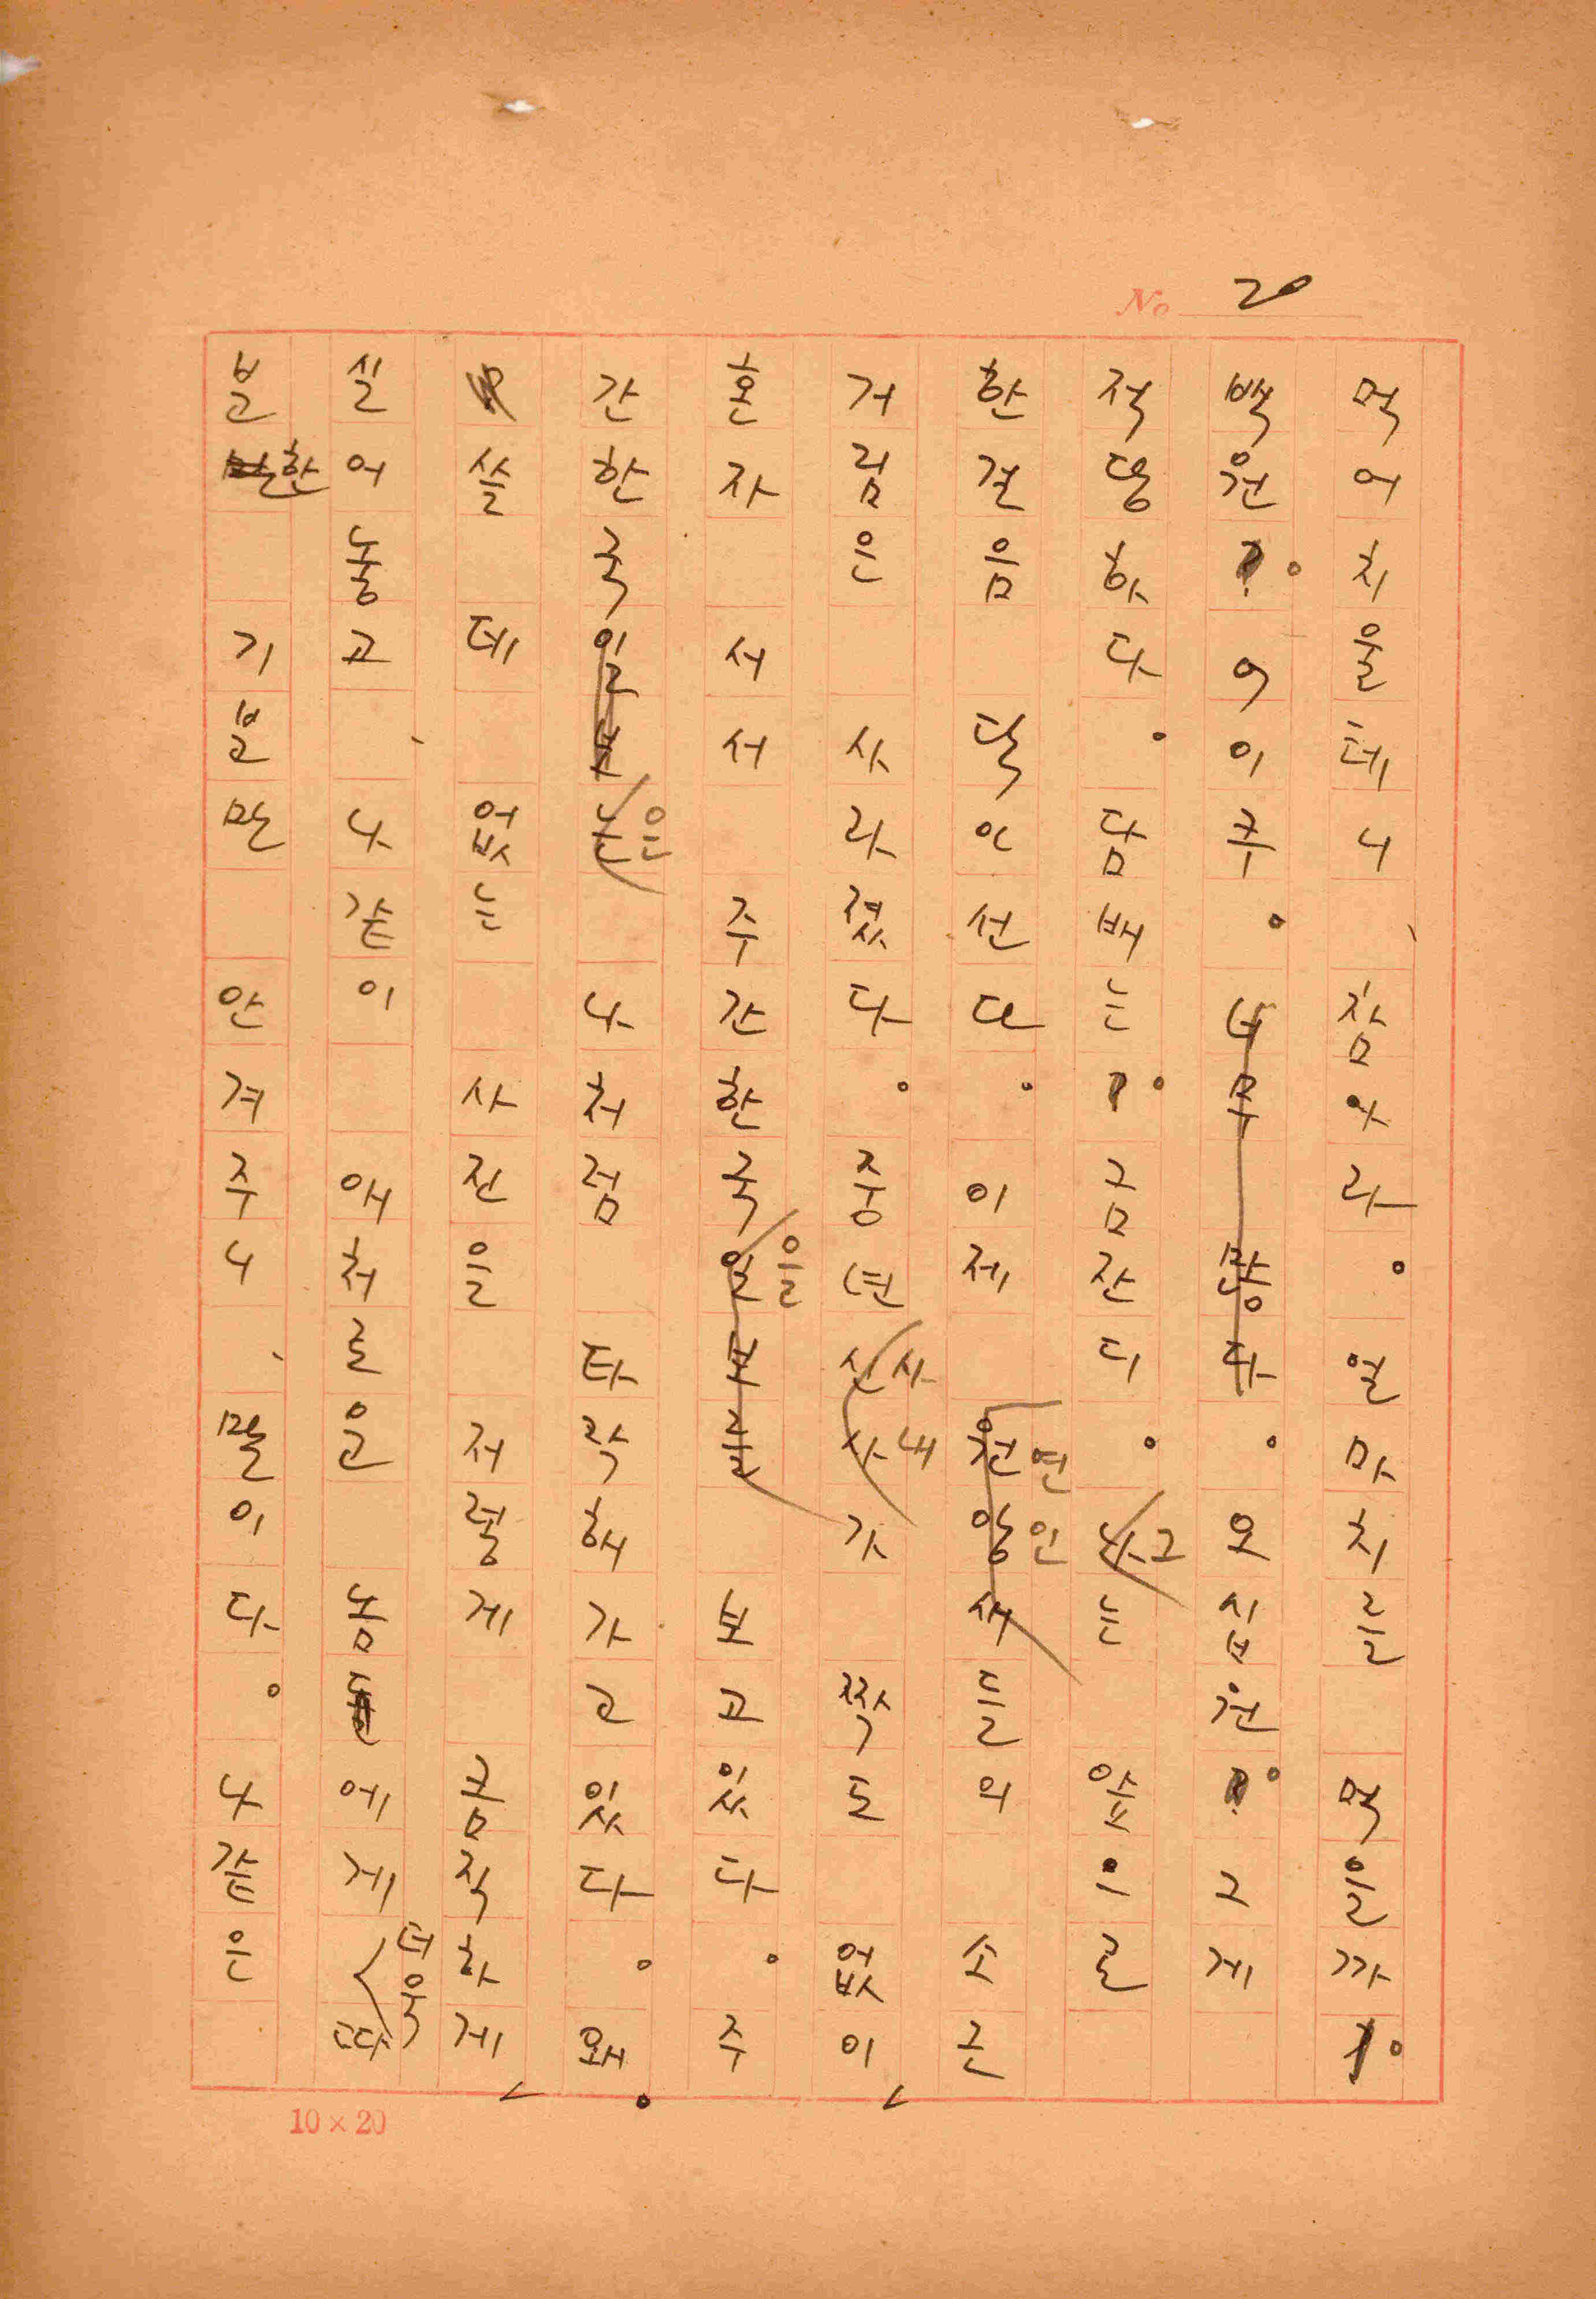 No 20
먹어치울테니、참아라。얼마치를 먹을까。
백원。아이구。오십원。그게
적당하다。담배는。금잔디。그는 앞으로
한걸음 닥아선다。이제 연인들의 소근
거림은 사라졌다。중년 사내가 짝도 없이
혼자 서서 주간한국을 보고있다。주
간한국은 나처럼 타락해가고있다。왜
쓸데없는 사진을 저렇게 큼직하게
실어놓고、나같이 애처로운 놈에게 더욱 따
분한 기분만 안겨주니、말이다。나같은
10×20